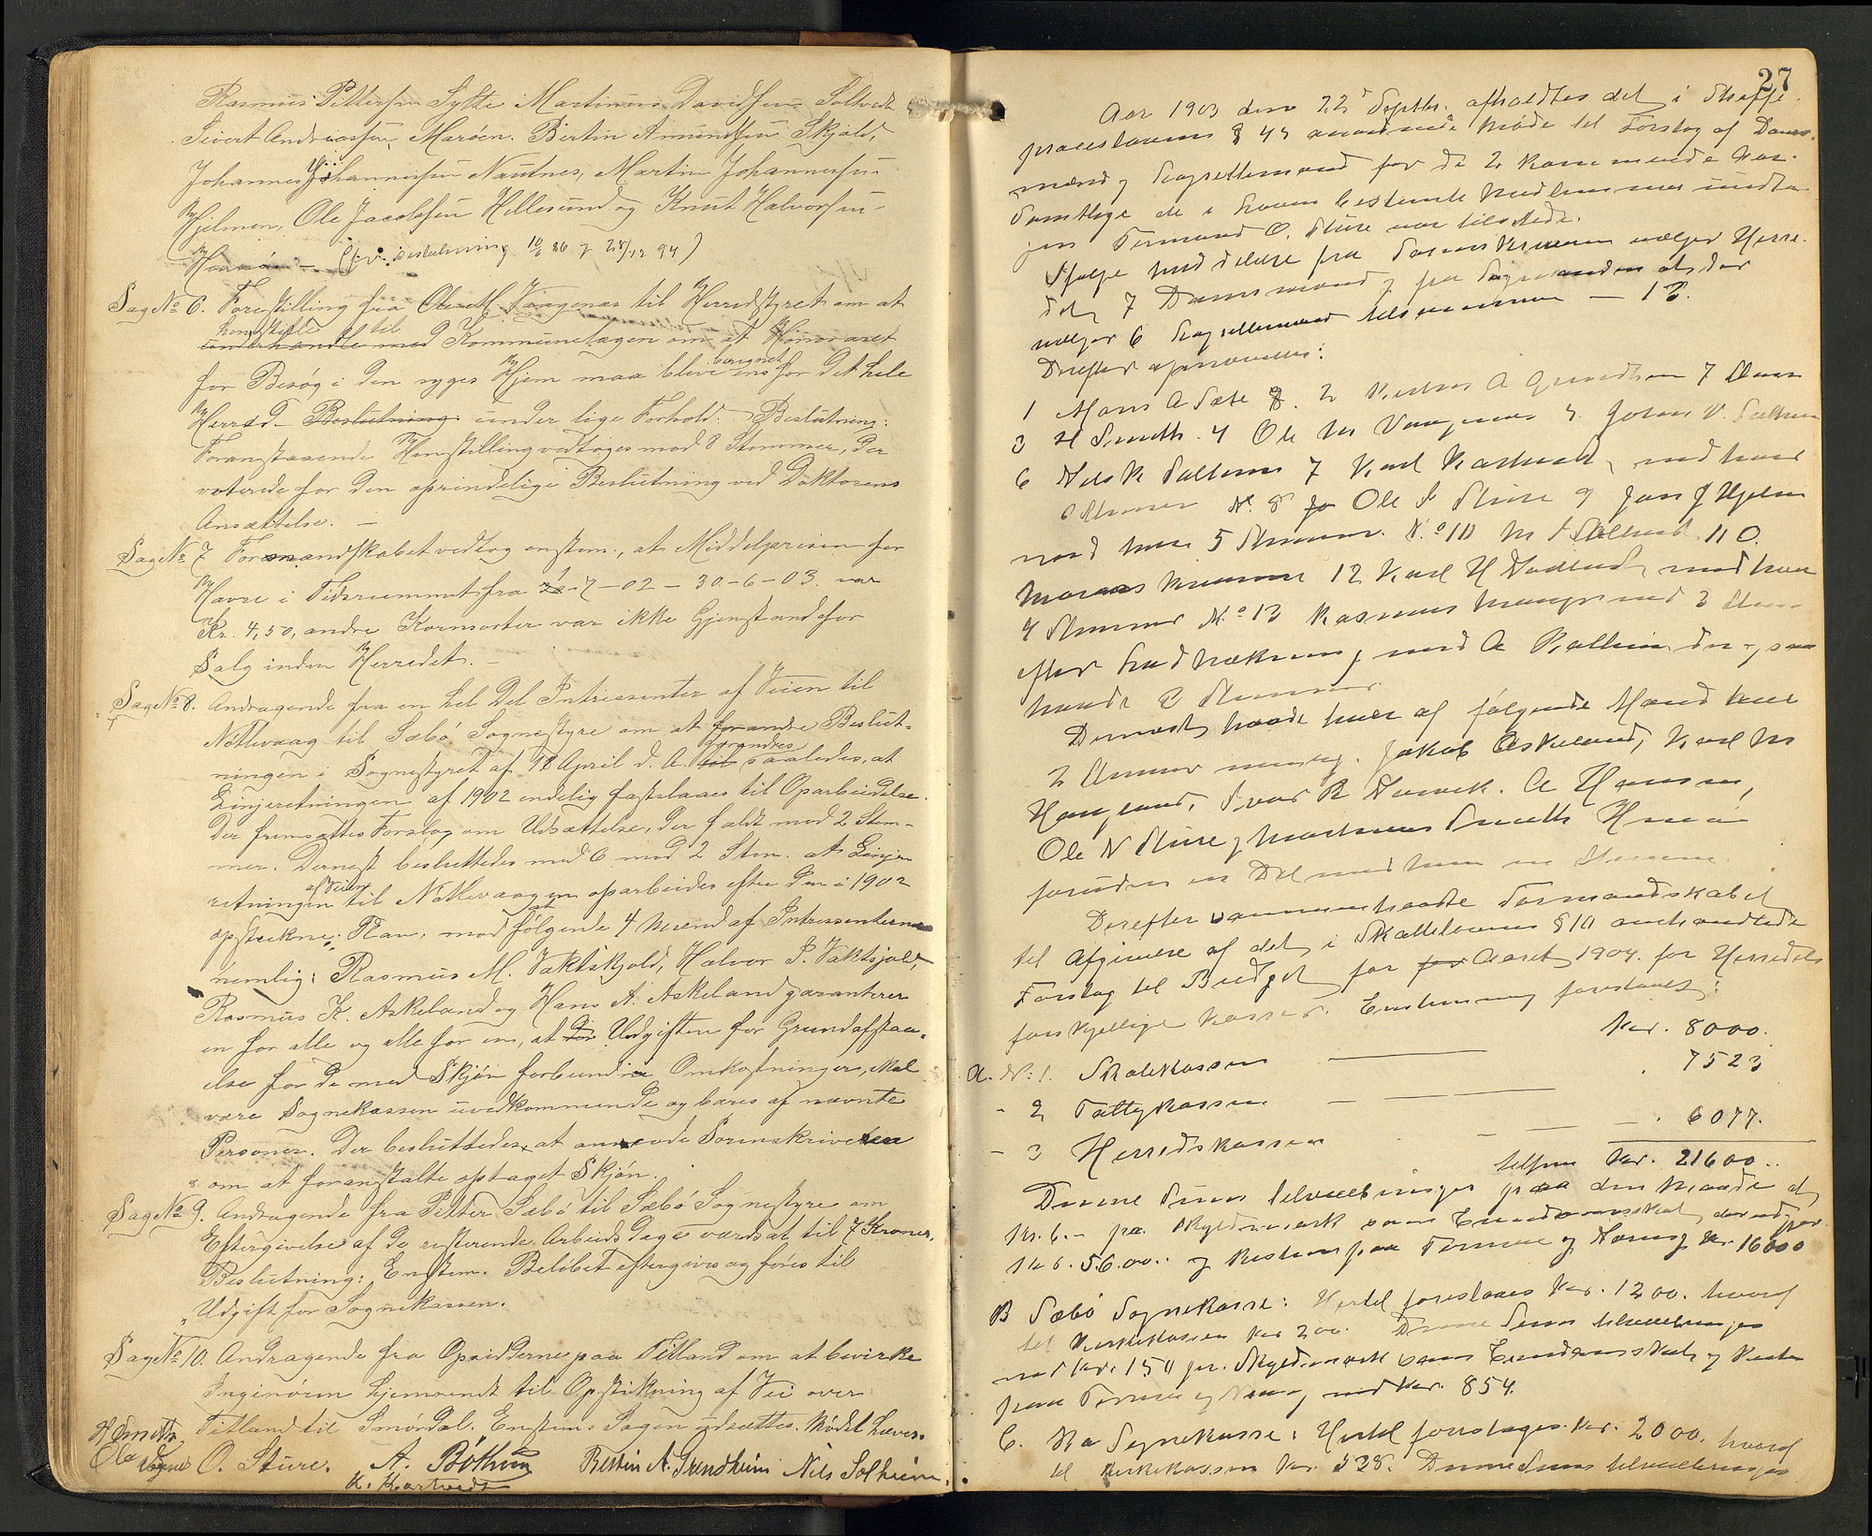 Rasmus Pettersen Syltø Martinus Davidsen Soltvedt
Sivert Andreassen Marøen. Bertin Amundsen Skjold,
Johannes Johannessen Nautnes, Martin Johannessen
Hjelmen, Ole Jacobsen Hillesund og Knut Halvorsen
(jvr. Beslutning 10/6 86 & 28/12 94)
Sag No 6. Forestilling fra Ole M. Vaagenes til Herredstyret om at
henstille til
underhandle med Kommunelægen om at Honoraret
beregnet
for Besøg i den syges Hjem maa blive ens for det hele
Herred Beslutning under lige Forhold. Beslutning:
Foranstaaende Henstilling vedtoges mod 8 Stemmer, der
voterede for den oprindelige Beslutning ved Doktorens
Ansættelse. —
Sag No 7 Formandskabet vedtog enstem., at Middelprisen for
Havre i Tidsrummet fra 1-7-02 – 30-6-03. var
Kr. 4,50, andre Kornsorter var ikke Gjenstand for
Salg inden Herredet. –
Sag No 8. Andragende fra en hel Del Intressenter af Veien til
Nøtlevaag til Sæbø Sognestyre om at forandre Beslut-
forandres
ningen i Sognestyret af 18 April d. A. saaledes, at
Linjeretningen af 1902 endelig fastslaaes til Oparbeidelse.
Der fremsattes Forslag om Udsættelse, der faldt med 2 Stem-
mer. Dernest besluttedes med 6 mod 2 Stem. at Linje-
af Veien
retningen til Nøtlevaagen oparbeides efter den i 1902
opstukne Plan, mod at følgende 4 Mænd af Intressenterne
nemlig: Rasmus M. Vaktskjold, Halvor J. Vaktsjold,
Rasmus K. Askeland og Hans A. Askeland garanterer
en for alle og alle for en, at de Udgifter for Grundafstaa-
else for de med Skjøn forbundne Omkostninger, skal
være Sognekassen uvedkommende og bæres af nævnte
Personer. Der besluttedes, at anmode Sorenskriveren
om at foranstalte optaget Skjøn.
Sag No 9. Andragende fra Petter Sæbø til Sæbø Sognestyre om
Eftergivelse af de resterende Arbeids Dage værdsat til 7 Kroner,
Beslutning: Enstem. Beløbet eftergives og føres til
Udgift for Sognekassen.
Sag No 10. Andragende fra Opsidderne paa Titland om at bevirke
Ingeniøren hjemsendt til Opstikning af Vei over
Titland til Smørdal. Enstem. Sagen udsættes. Mødet hævet.
H Smith
Ole Vaagenes O. Sture. A. Bøthun Bertin A. Grendheim Nils Solheim
K. Kartveit
27
Aar 1903 den 22 Septbr. afholdtes det i Straffe-
proceslovens § 43 anordnede Møde til Forslag af Doms-
mænd og Lagrettemænd for de 2 kommende Aar.
Samtlige de i Loven bestemte Medlemmer undta-
gen Formand O. Sture var tilstede.
Ifølge Meddelelse fra Sorenskriveren vælger Herre-
det 7 Domsmænd og fra Sognemanden at der
vælges 6 Lagrettemænd tilsammen — 13.
Derefter opnævntes:
1 Mons A Sæte 2 Bertin A Grendheim 7 Stem
3 H Smith. 4 Ole M Vaagenes 5 Johan V.
6 Nils K Solheim 7 Karl Kartveit, med hver
6 Stemmer No. 8 Ole I Sture 9 Jon J Hjelmen
med hver 5 Stemmer. No 10 11 O.
12 Karl H med hver
4 Stemmer No 13 Rasmus Mangers med 3 Stem-
efter Lodtrækning med A Bøthun der ogsaa
havde 3 Stemmer.
Dernest havde hver af følgende Mænd hver
2 Stemmer nemlig. Jakob Askeland, Karl M
Haugland, Ivar R A Hansen,
Ole N Sture og Martinus Smith
foruden en Del med hver en Stemme.
Derefter sammentraadte Formandskabet
til Afgivelse af det i Skatteloven § 10 omhandlede
Forslag til Budget for Aaret 1904. for Herredets
forskjellige Kasser. Enstemmig foreslaaes:
A. No 1. Skolekassen — Kr. 8000.
- 2 Fattigkassen — 7523
- 3 Herredskassen — 6077.
tilsam Kr. 21600..
Denne Sum tilveiebringes paa den Maade at
Kr. 6.- pr. Skyldmark som Eiendomsskat, der udgjør
Kr. 5600.. og Resten paa Formue og Næring Kr. 16000
B Sæbø Sognekasse: Hertil foreslaaes Kr. 1200. hvoraf
til Kirkekassen Kr 200. Denne Sum tilveiebringes
med Kr. 1.50 pr. Skyldmark som Eiendomsskat og Resten
paa Formue og Næring med Kr. 854.
C. Bø Sognekasse: Hertil foreslages Kr. 2000. hvoraf
til Kirkekassen Kr. 538. Denne Sum tilveiebringes